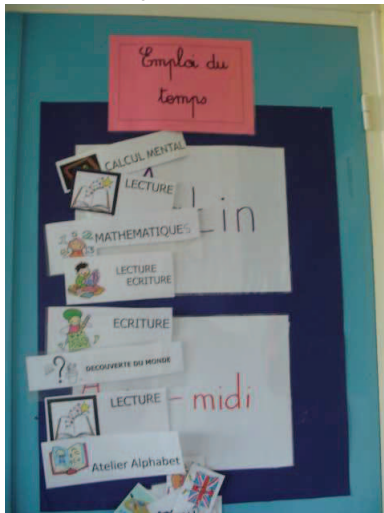 Emploi du
temps
CALCUL MENTAL
LECTURE
MATHEMATIQUES
LECTURE
ECRITURE
ECRITURE
DECOUVERTE DU MONDE
LECTURE
- midi
Atelier Alphabet